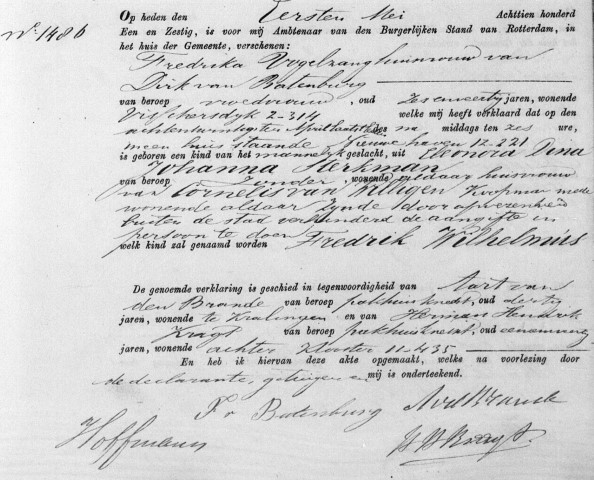 No. 1486
Op heden den Eersten Mei Achttien honderd
Een en Zestig, is voor mij Ambtenaar van den Burgerlijken Stand van Rotterdam, in
het huis der Gemeente, verschenen:
Fredrika Vogelzang huisvrouw van
Dirk van Batenburg
van beroep vroedvrouw, oud jaren, wonende
Visschersdyk 2-314 welke mij heeft verklaard dat op den
achtentwintigsten April laatstl. des na middags ten zes ure,
in een huis staande Nieuwehaven 12-221
is geboren een kind van het mannelyk geslacht, uit Eleonora Dina
Johanna Kerkman
van beroep zonder, wonende aldaar huisvrouw
van Cornelis van Villigen Koopman mede
wonende aldaar zynde door afwezenheid
buiten de stad verhinderd de aangifte in
persoon te doen
welk kind zal genaamd worden Fredrik Wilhelmus
De genoemde verklaring is geschied in tegenwoordigheid van Aart van
den Brande van beroep pakhuisknecht, oud dertig
jaren, wonende te Kralingen en van Herman Hendrik
Kragt van beroep pakhuisknecht, oud
jaren, wonende achter Klooster 11-435
En heb ik hiervan deze akte opgemaakt, welke na voorlezing door
de declarante, getuigen en mij is onderteekend.
F v Batenburg AvdBrande
Hoffmann HHKragt.